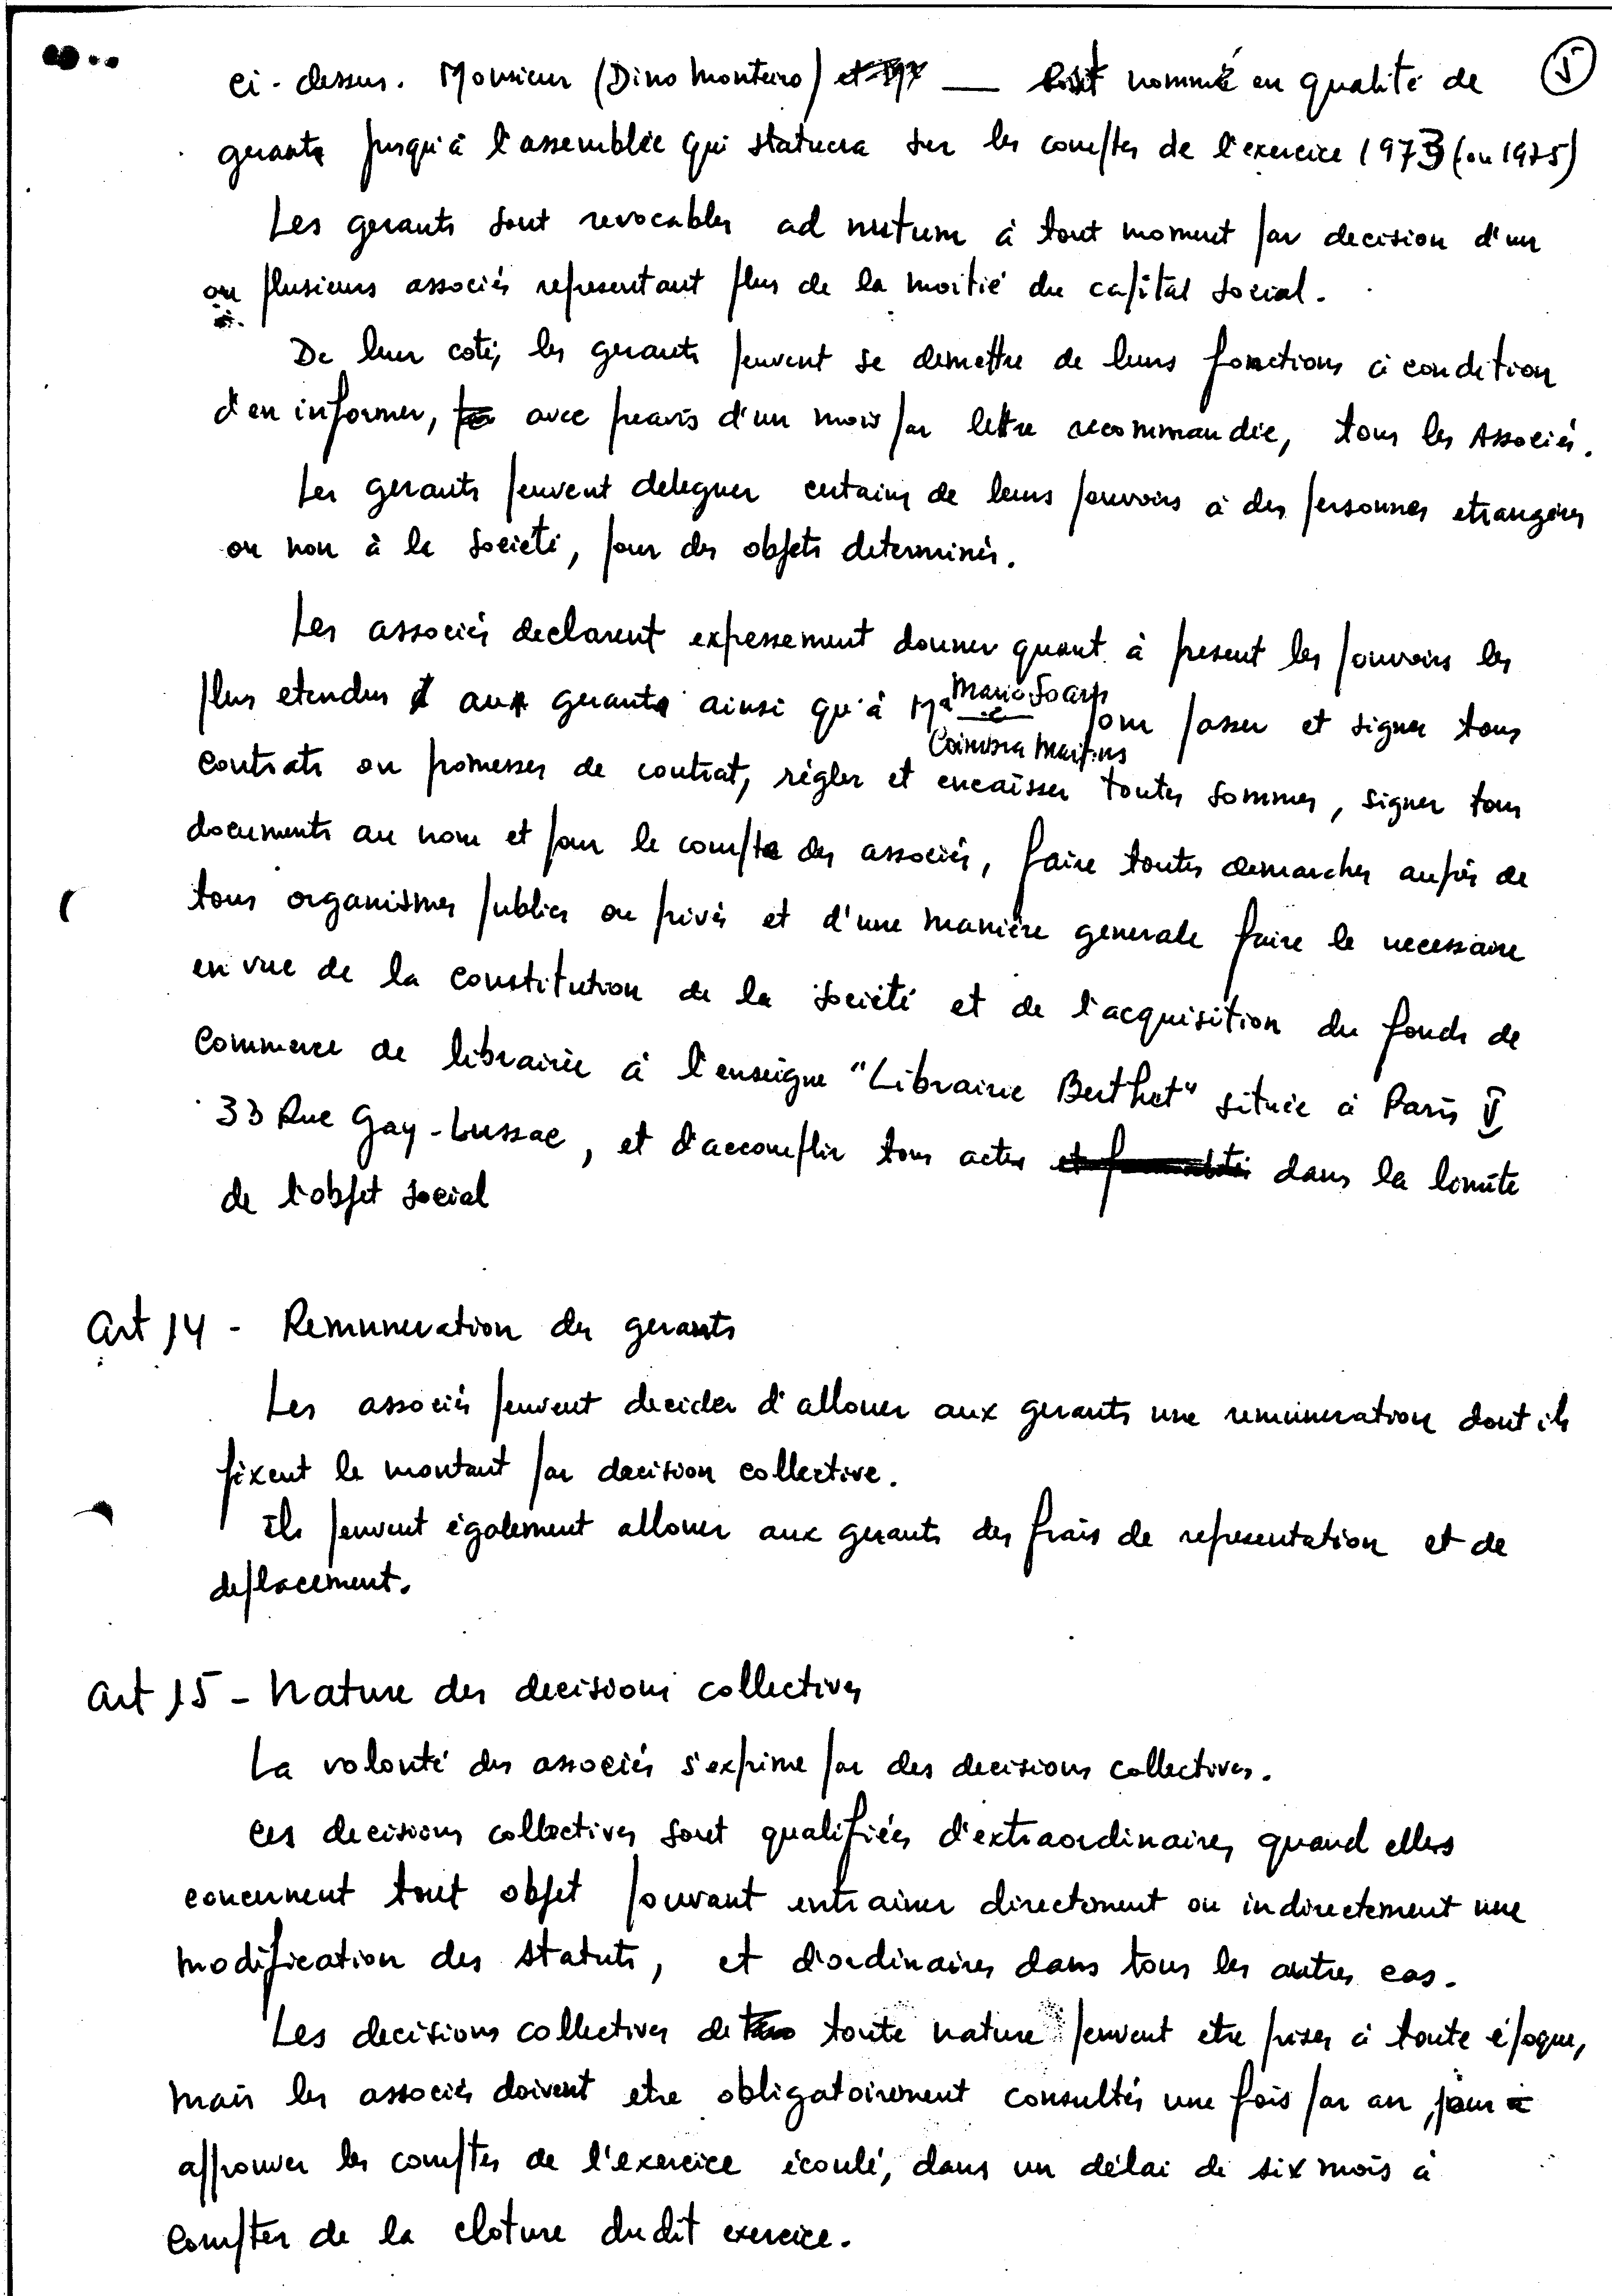 5
ci-dessus. Monsieur (Dino Monteiro) et — est nommé en qualité de
gerant jusqu'à l'assemblée qui statuera sur les comptes de l'exercice 1973 (ou 1975)
Les gerants sont revocables ad nutum à tout moment par decision d'un
ou plusieurs associés representant plus de la moitié du capital social.
De leur coté, les gerants peuvent se demettre de leurs fonctions à condition
d'en informer, avec preavis d'un mois par lettre recommandée, tous les Associés.
Les gerants peuvent deleguer certains de leurs pouvoirs à des personnes etrangères
ou non à la societé, pour des objets determinés.
Les associés declarent expressement donner quant à present les pouvoirs les
plus etendus au gerant ainsi qu'à Mr Mario Soares pour passer et signer tous
Coimbra Martins
contrats ou promesses de contrat, règler et encaisser toutes sommes, signer tous
documents au nom et pour le compte des associés, faire toutes demarches auprès de
tous organismes publics ou privés et d'une manière generale faire le necessaire
en vue de la constitution de la société et de l'acquisition du fonds de
commerce de librairie à l'enseigne "Librairie Berthet" située à Paris V
33 Rue Gay-Lussac, et d'accomplir tous actes et formalités dans la limite
de l'objet social
Art 14 - Remuneration des gerants
Les associés peuvent decider d'allouer aux gerants une remuneration dont ils
fixent le montant par decision collective.
Ils peuvent également allouer aux gerants des frais de representation et de
deplacement.
Art 15 - Nature des decisions collectives
La volonté des associés s'exprime par des decisions collectives.
Ces decisions collectives sont qualifiées d'extraordinaires quand elles
concernent tout objet pouvant entrainer directement ou indirectement une
modification des statuts, et d'ordinaires dans tous les autres cas.
Les decisions collectives de toute nature peuvent etre prises à toute époque,
mais les associés doivent etre obligatoirement consultés une fois par an, pour
approuver les comptes de l'exercice écoulé, dans un délai de six mois à
compter de la cloture dudit exercice.